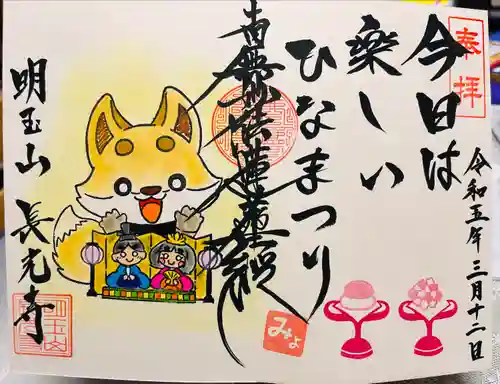 奉拝
今日は
楽しい
ひなまつり
令和五年三月十二日
南無妙法蓮華経
みょ
明玉山 長光寺